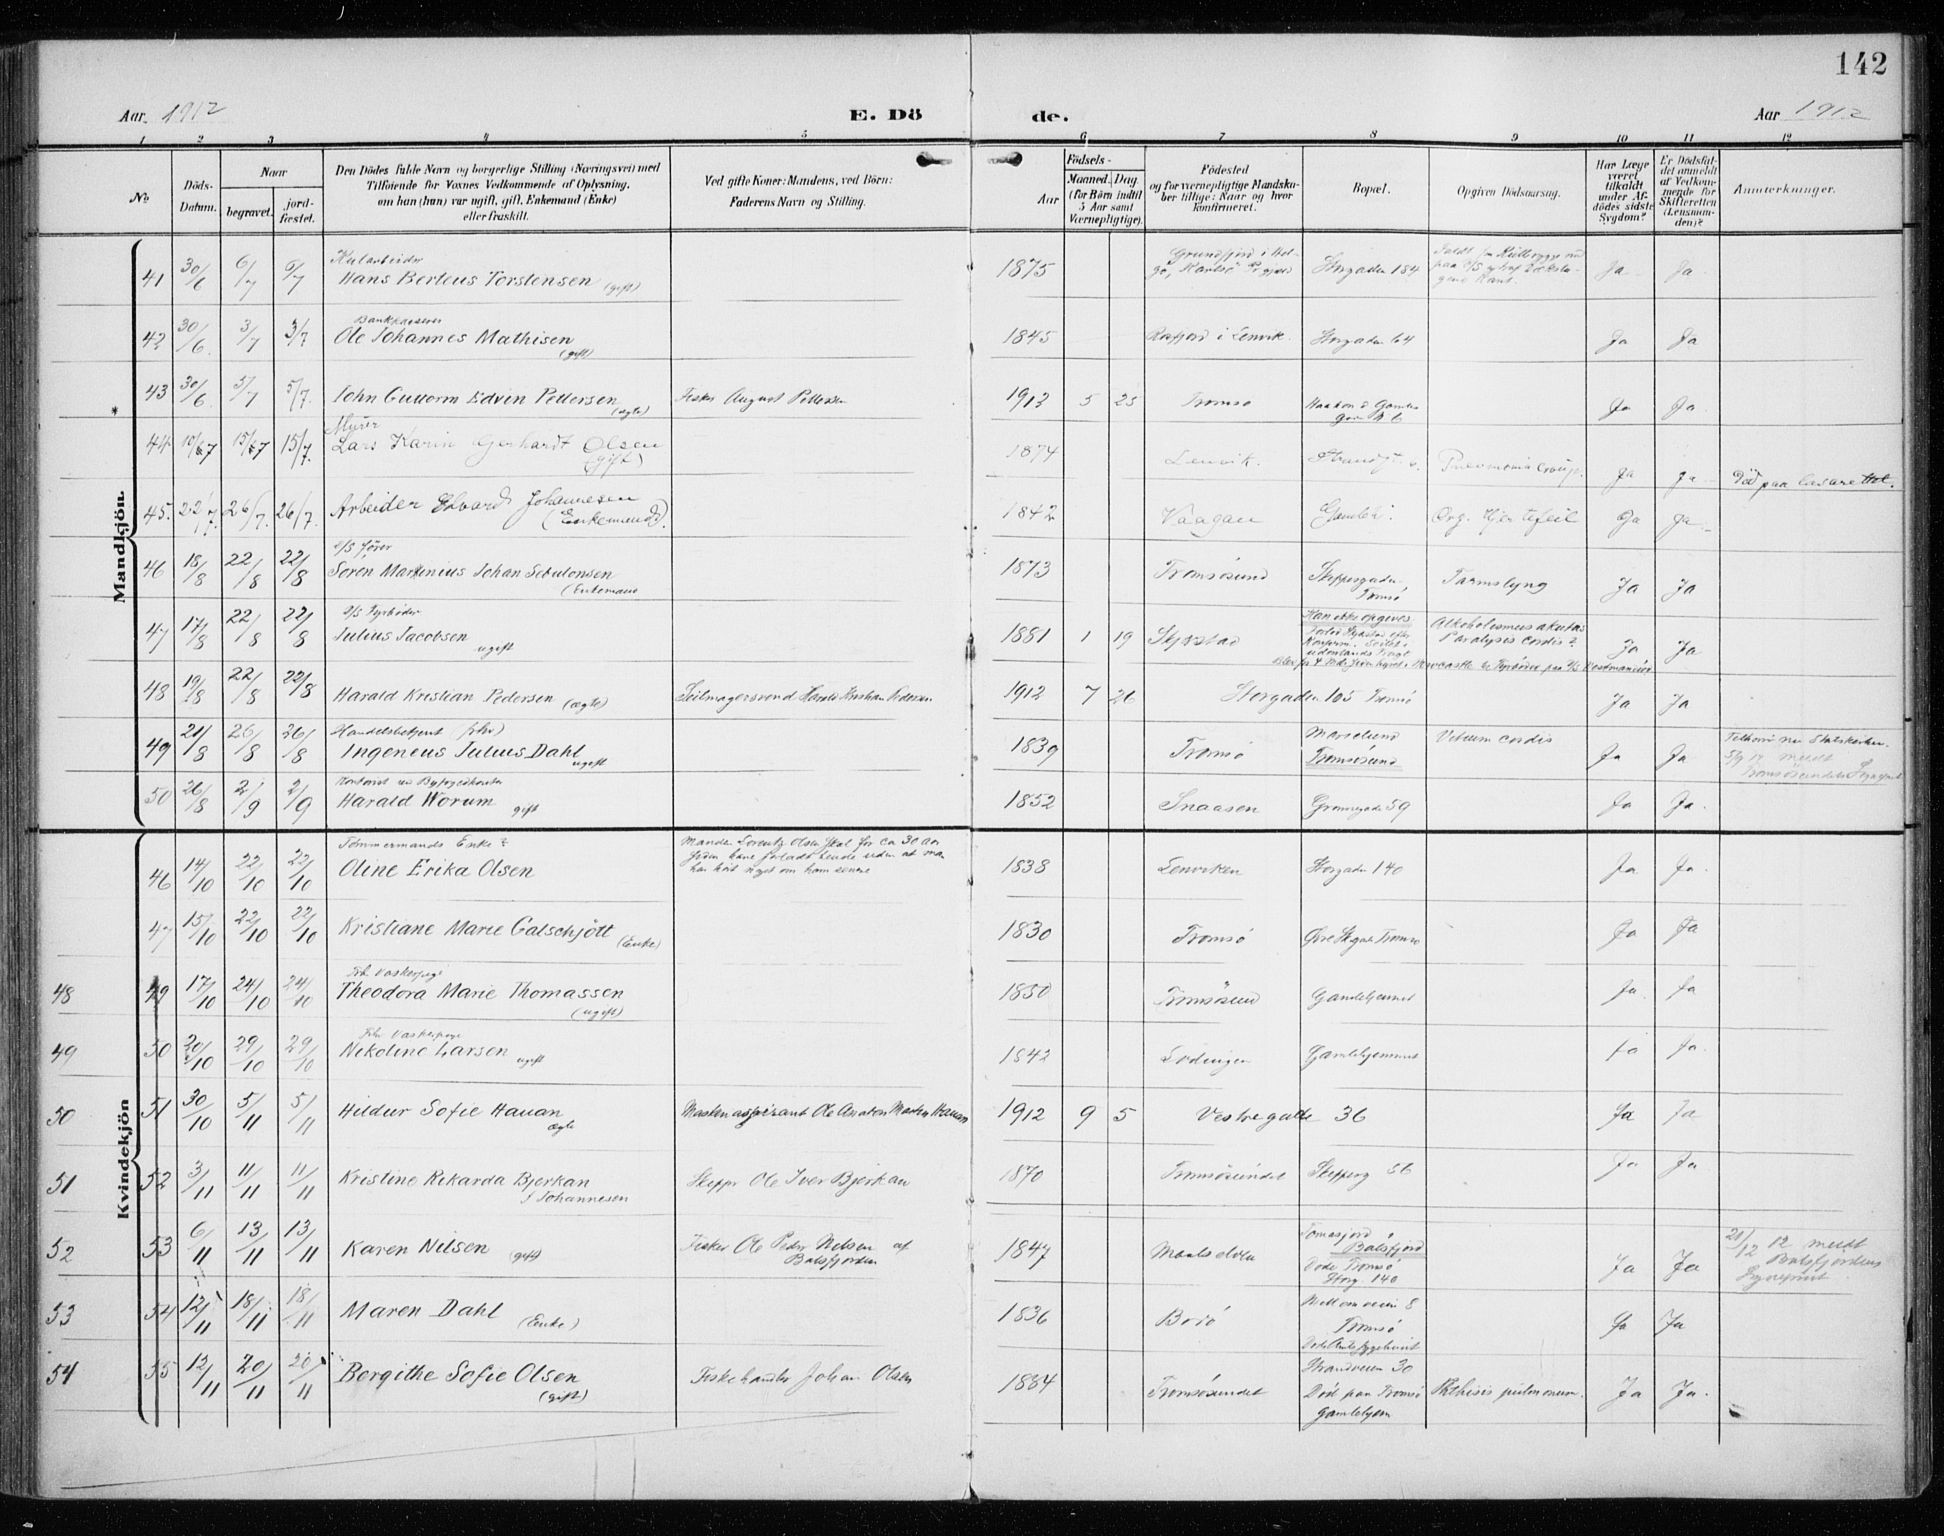 142
Aar 1912 E. Dö de. Aar 1912
1 2 3 4 5 6 7 8 9 10 11 12
No. Döds-Datum. Naar begravet. jordfæstet. Den Dödes fulde Navn og borgerlige Stilling (Næringsvei) med Tilföiende for Voxnes Vedkommende af Oplysning, om han (hun) var ugift, gift, Enkemand (Enke) eller fraskilt. Ved gifte Koner: Mandens, ved Börn: Faderens Navn og Stilling. Födsels- Aar Maaned. Dag. (for Börn indtil 5 Aar samt Værnepligtige). Födested og for værnepligtige Mandskaber tillige: Naar og hvor konfirmeret. Bopæl. Opgiven Dödsaarsag. Har Læge været tilkaldt under Afdödes sidste Sygdom? Er Dödsfaldet anmeldt af Vedkommende for Skifteretten (Lensmanden)? Anmerkninger.
Mandkjön
41 30/6 6/7 6/7 Hans Berteus Torstensen (gift) 1875 Storgaden 184 Ja Ja
42 30/6 3/7 3/7 Ole Johannes Mathisen (gift) 1845 i Lenvik. Storgaden 64 Ja Ja
43 30/6 5/7 5/7. John Guttorm Edvin Pettersen (ægte) Fisker August Pettersen 1912 5 25 Tromsø Ja Ja
44 10/7 15/7 15/7. Murer Lars Karin Gerhardt Olsen (gift) 1874 Lenvik. Ja Ja Död paa lasarettet.
45. 22/7. 26/7. 26/7. Arbeider Edvard Johannesen (Enkemand). 1842 Vaagan Org. Hjertefeil Ja Ja
46 18/8 22/8 22/8 Sören Martenius Johan Sebulonsen (Enkemand 1873 Tromsösund Skippergaden Tromsö Tarmslyng Ja Ja
47 17/8 22/8 22/8 D/S Fyrböder Julius Jacobsen ugift 1881 1 19 Kan ikke opgives Alkoholismus akutus Paralysis cordis? Ja Ja
48 19/8 22/8 22/8 Harald Kristian Pedersen (ægte) Seilmagersvend Harald Kristian Pedersen 1912 7 26 Storgaden 105 Tromsö Ja Ja
49 21/8 26/8 26/8 Handelsbetjent Ingeneus Julius Dahl ugift 1839 Tromsö Tromsösund Vitium cordis Ja Ja
50 26/8 2/9 2/9 Harald Worum gift 1852 Snaasen Grønnegade 59 Ja Ja.
Kvindekjön
46 14/10 22/10 22/10 Tömmermands Enke? Oline Erika Olsen Manden Lorentz Olsen skal for ca 30 aar siden have forladt hende uden at man har hört noget om ham senere 1838 Lenviken Storgaden 140 Ja Ja.
47 15/10 22/10 22/10 Kristiane Marie Galschjött (Enke) 1830 Tromsö Ja Ja
48 49 17/10 24/10 24/10 Theodora Marie Thomassen (ugift) 1850 Tromsösund Gamlehjemmet Ja. Ja
49 50 20/10 29/10 29/10 Nikoline Larsen ugift 1842 Lödingen Gamlehjemmet Ja Ja.
50 51 30/10 5/11 5/11 Hildur Sofie Hauan ægte Maskinaspirant Ole Anaton Martin Hauan 1912 9 5 Vestregade 36 Ja Ja
51 52 3/11 11/11 11/11 Kristine Rikarda Bjerkan f Johannesen Skipper Ole Iver Bjerkan 1870 Tromsösundet Skipperg 36 Ja Ja
52 53 6/11 13/11 13/11 Karen Nilsen (gift) Fisker Ole Peder Nilsen af Balsfjorden 1847 Maalselven Tomasjord i Balsfjord Döde Tromsö Storg. 140 Ja Ja 21/12 12 meldt Balsfjordens Sogneprest
53 54 12/11 18/11 18/11 Maren Dahl (Enke) 1836 Mellemveien 8 Tromsö Ja Ja
54 55 12/11 20/11 20/11 Bergithe Sofie Olsen (gift) Fiskehandler Johan Olsen 1884 Tromsösundet Strandveien 30 Död paa Tromsö Gamlehjem Phthisis pulmonum. Ja Ja.